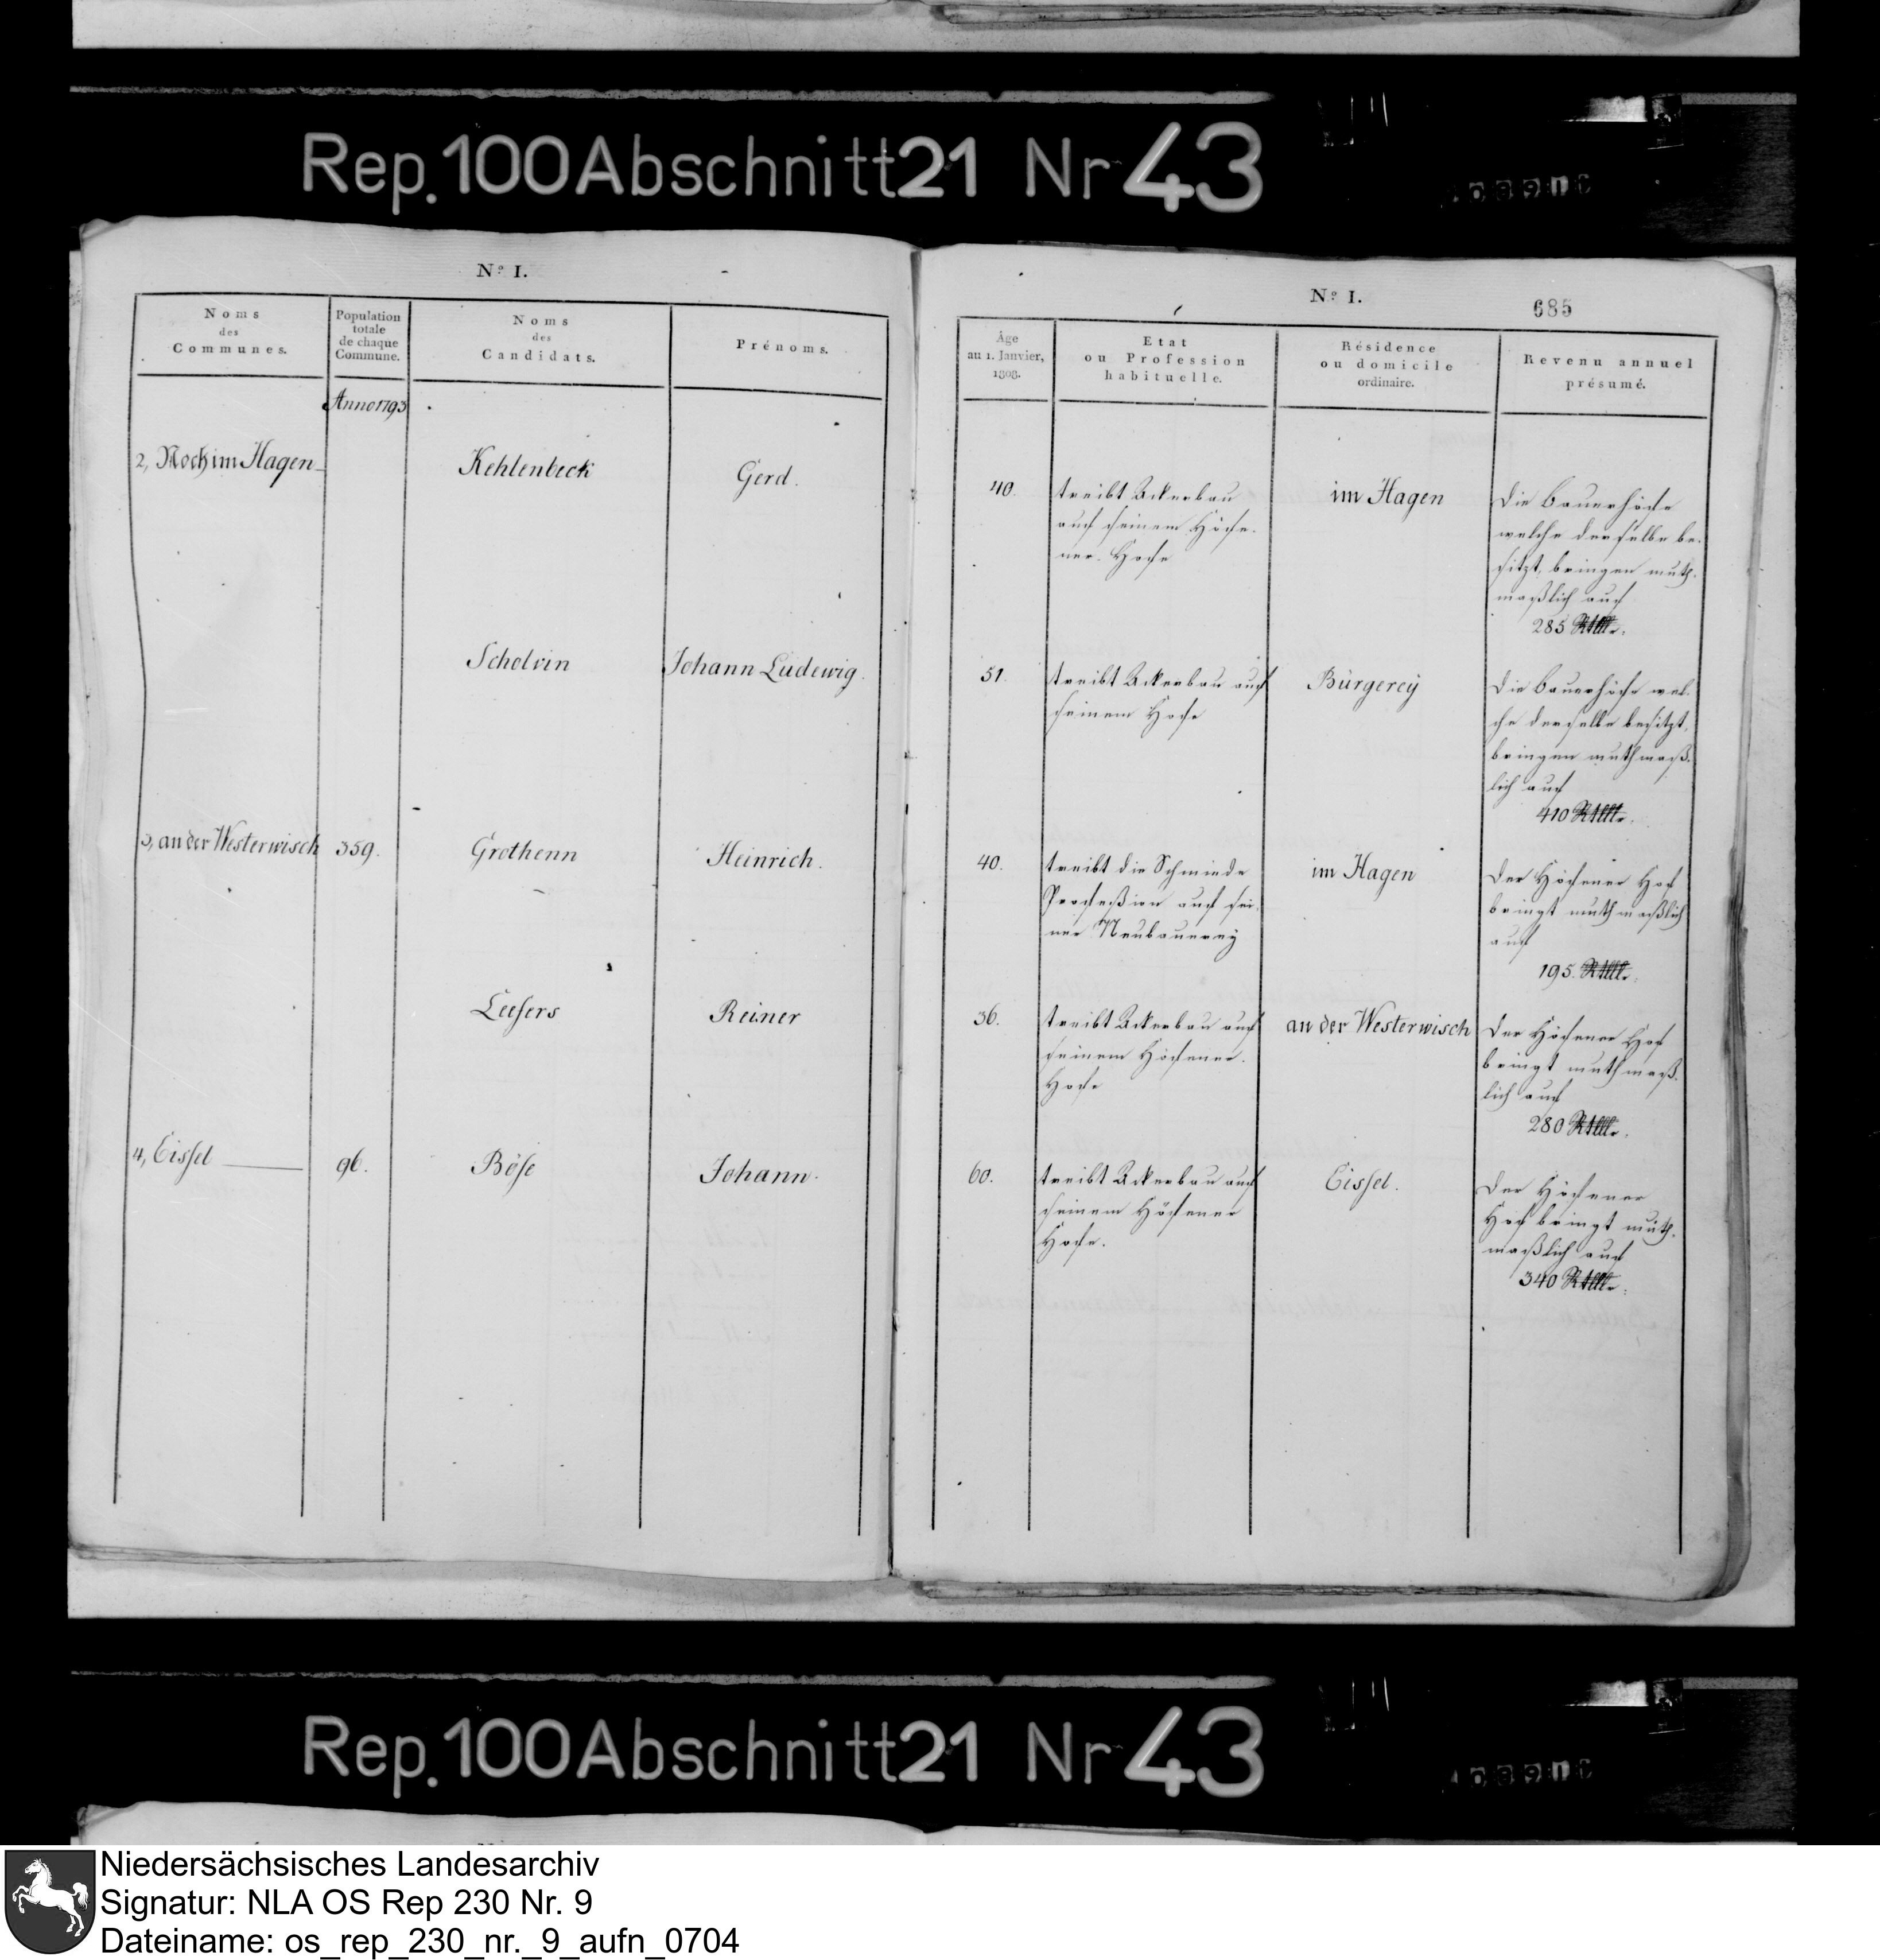 Rep. 100 Abschnitt 21 Nr 43
Nº I.
Noms
des
Communes.
Population
totale
de chaque
Commune.
Noms
des
Candidats.
Prénoms.
Anno 1793
2, Noch im Hagen
Kehlenbeck
Gerd.
Scholvin
Johann Ludewig.
3, an der Westerwisch
359.
Grothenn
Heinrich.
Luesers
Reiner
4, Eissel
96.
Böse
Johann.
Nº I.
685
Âge
au 1. Janvier,
1808.
Etat
ou Profession
habituelle.
Résidence
ou domicile
ordinaire.
Revenu annuel
présumé.
40.
treibt Ackerbau
auf seinem Höfe-
ner. Hofe
im Hagen
Die Bauerhöfe
welche derselbe be-
sitzt, bringen muth-
maßlich auf
285 Rthlr.
51.
treibt Ackerbau auf
seinem Hofe
Bürgerey
Die Bauerhöfe wel-
che derselbe besitzt,
bringen muthmaß-
lich auf
410 Rthlr.
40.
treibt die Schmiede
Profeßion auf sei-
ner Neubauerey
im Hagen
Der Höfener Hof
bringt muthmaßlich
auf
195. Rthlr.
36.
treibt Ackerbau auf
seinem Höfener.
Hofe
an der Westerwisch
Der Höfener Hof
bringt muthmaß-
lich auf
280 Rthlr.
60.
treibt Ackerbau auf
seinem Höfener
Hofe.
Eissel.
Der Höfener
Hof bringt muth-
maßlich auf
340 Rthlr.
Rep. 100 Abschnitt 21 Nr 43
Niedersächsisches Landesarchiv
Signatur: NLA OS Rep 230 Nr. 9
Dateiname: os_rep_230_nr._9_aufn_0704